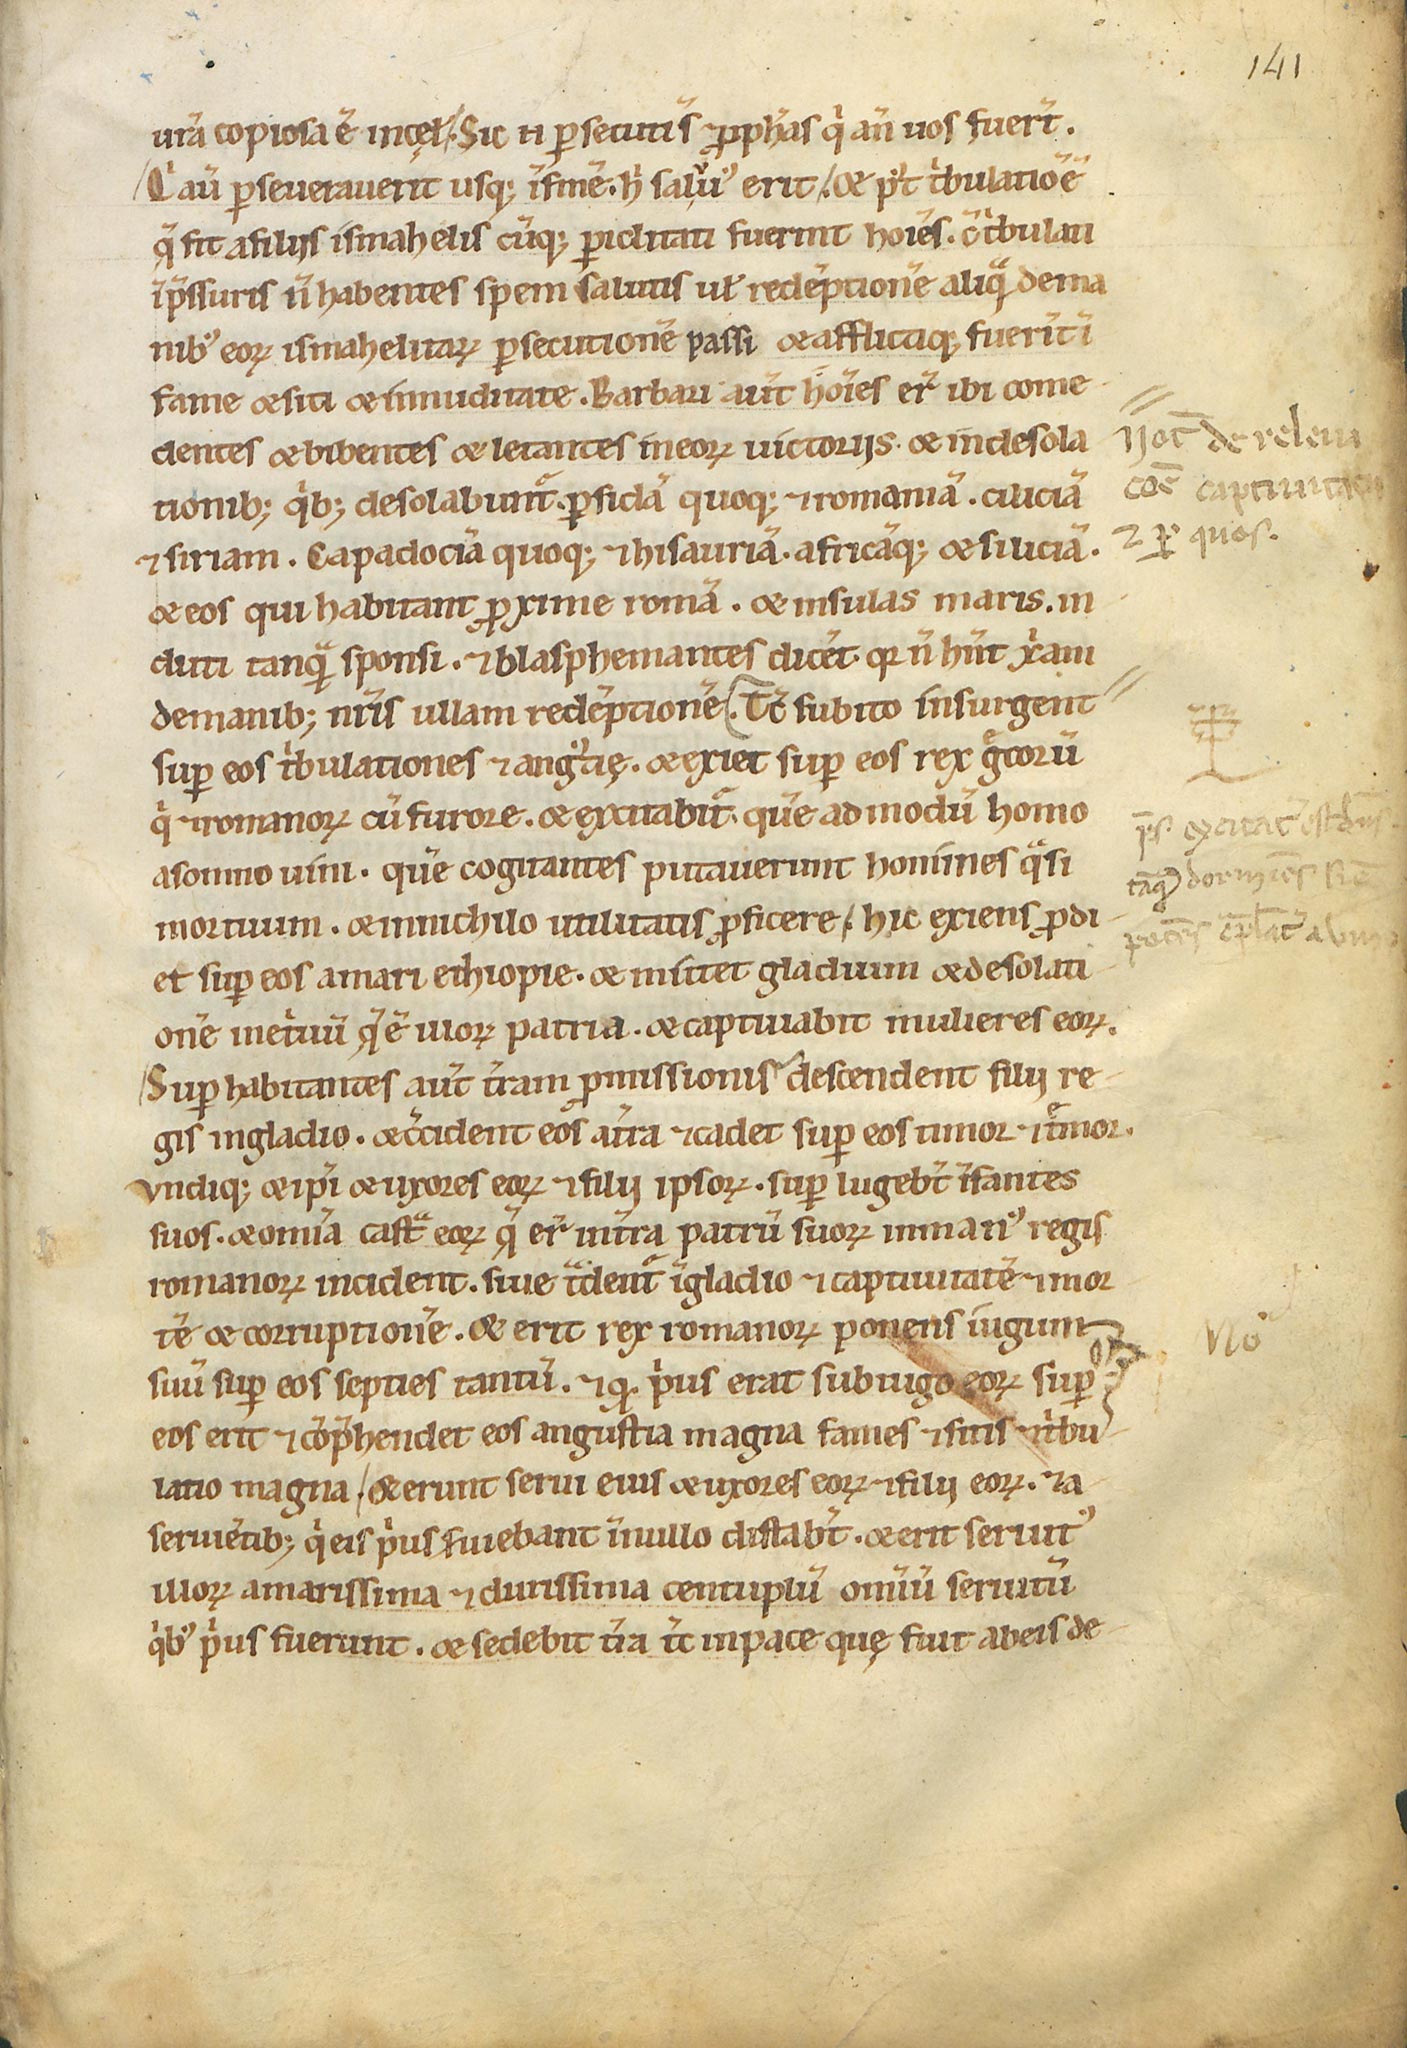 141
ur̄a copiosa ē incęł. Sic n̄ ꝑsecuti s̄ ꝓph̄as q̇ an̄ uos fuer̄t.
Q̇ aū ꝑseuerauerit usq; ī finē. h̄ saluꝰ erit. & pꝰt ṫbulationē
q̄ fit a filiis ismahelis cūq; ꝑiclitati fuerint hoīes. & ṫbulati
ī p̄ssuris n̄ habentes spem salutis uł redēptionē aliquā de ma
nibꝰ eoꝝ ismahelitaꝝ ꝑsecutionē passi & afflictiq; fuerīt ī
fame & siti & in nuditate. Barbari aūt hoīes er̄ ibi come
dentes & bibentes & letantes in eoꝝ uictoriis. & in desola
tionib; q̇b; desolabunt᷑. ꝑsidā quoq; ⁊ romaniā. ciliciā
⁊ siriam. Capadociā quoq; ⁊ hisauriā. africāq; & siliciā.
& eos qui habitant ꝓxime romā. & insulas maris. in
duti tanquā sponsi. ⁊ blasphemantes dicēt. qꝛ n̄ hn̄t xp̄iani
de manib; nr̄is ullam redēptionē. Tc̄ subito insurgent
suꝑ eos ṫbulationes ⁊ angꝰtię. & exiet suꝑ eos rex gͨcorū
q̇ ⁊ romanoꝝ cū furore. & excitabit᷑. quē ad modū homo
a somno uini. quē cogitantes putauerunt homines qͣsi
mortuum. & in nichilo utilitatis ꝓficere. hic exiens ꝓdi
et suꝑ eos a mari ethiopie. & mittet gladium & desolati
onē in etͥuū q̄ ē illoꝝ patria. & captiuabit mulieres eoꝝ.
Suꝑ habitantes aūt tr̄am ꝓmissionis descendent filii re
gis in gladio. & cc̄ident eos a tr̄a ⁊ cadet suꝑ eos timor ⁊ tͤmor.
undiq; & ip̄i & uxores eoꝝ ⁊ filii ipsoꝝ. suꝑ lugebt̄ īfantes
suos. & om̄ia castͣ eoꝝ q̄ er̄ in tr̄a patrū suoꝝ in manꝰ regis
romanoꝝ incident. siue tͣdent᷑ ī gladio ⁊ captiuitatē ⁊ mor
tē & corruptionē. & erit rex romanoꝝ ponens iugum
suū suꝑ eos septies tantū. ⁊ qꝛ ṗus erat sub iugo eoꝝ suꝑ
eos erit ⁊ cōp̄hendet eos angustia magna fames ⁊ sitis ⁊ ṫbu
latio magna. & erunt serui eius & uxores eoꝝ ⁊ filii eoꝝ. ⁊ a
seruiētib; q̇ eis ṗus s̄uiebant ī nullo distabt̄. & erit seruitꝰ
illoꝝ amarissima ⁊ durissima centuplū omniū seruitū
q̇bꝰ ṗus fuerunt. & sedebit tr̄a tc̄ in pace quę fuit ab eis de
Not̄ de releui
coē captiuitatis
⁊ ꝑ quos.
p̄s. excitat᷑ est dn̄s
tāqͣ dormiēs
potēs a uino
No